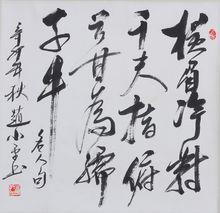 横眉冷对
千夫指俯
首甘为孺
子牛
名人句
辛卯年秋赵小